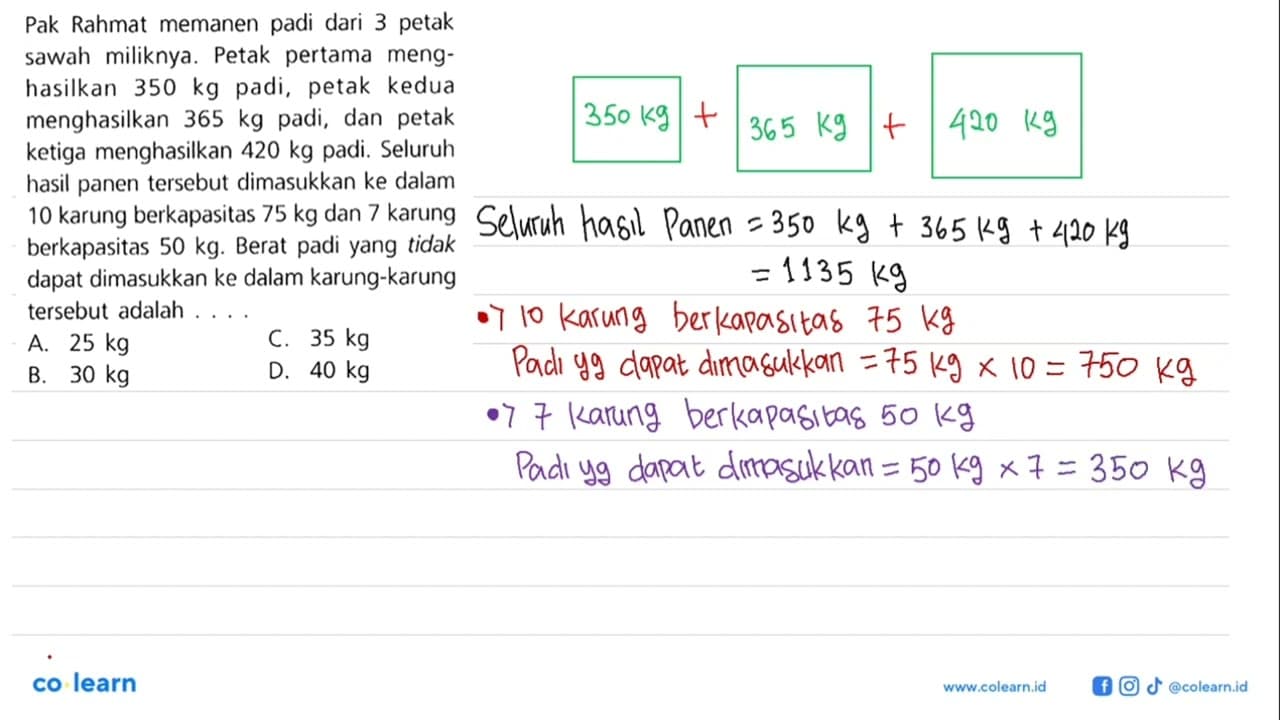 Pak Rahmat memanen padi dari 3 petak
sawah miliknya. Petak pertama meng-
hasilkan 350 kg padi, petak kedua
menghasilkan 365 kg padi, dan petak
ketiga menghasilkan 420 kg padi. Seluruh
hasil panen tersebut dimasukkan ke dalam
10 karung berkapasitas 75 kg dan 7 karung
berkapasitas 50 kg. Berat padi yang tidak
dapat dimasukkan ke dalam karung-karung
tersebut adalah . . . .
A. 25 kg C. 35 kg
B. 30 kg D. 40 kg
350 kg + 365 kg + 420 kg
Seluruh hasil Panen = 350 kg + 365 kg + 420 kg
= 1135 kg
•> 10 karung berkapasitas 75 kg
Padi yg dapat dimasukkan = 75 kg × 10 = 750 kg
•> 7 karung berkapasitas 50 kg
Padi yg dapat dimasukkan = 50 kg × 7 = 350 kg
co learn
www.colearn.id @colearn.id